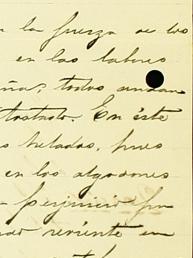 la fuerza de los
en las labores
ña, todos andan
trastado. En éste
s heladas, pues
en los algodones
perjuicio por
reviente en